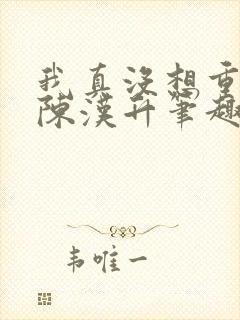 我真没想重
陈汉升笔趣
韦唯一